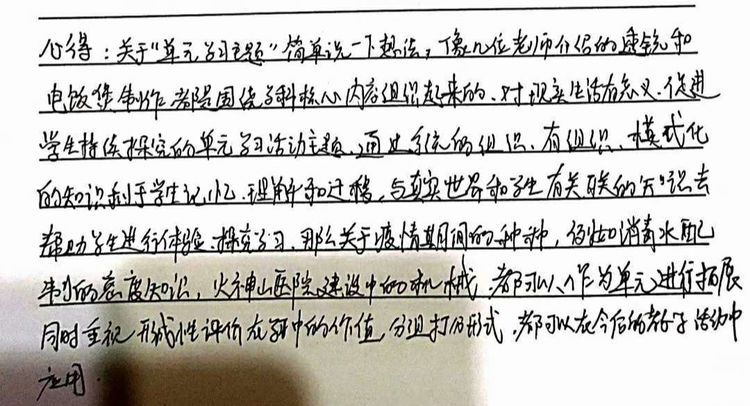 心得：关于"单元学习主题"简单说一下想法，像几位老师介绍的透镜和
电饭煲制作都是围绕学科核心内容组织起来的、对现实生活有意义、促进
学生持续探究的单元学习活动主题，通过系统的组织、有组织、模式化
的知识利于学生记忆、理解和迁移，与真实世界和学生有关联的知识去
帮助学生进行体验、探究学习、那么关于疫情期间的种种，例如消毒水配
制的密度知识，火神山医院建设中的机械，都可以作为单元进行拓展
同时重视形成性评价在课中的价值，分组打分形式，都可以在今后的教学活动中
应用.